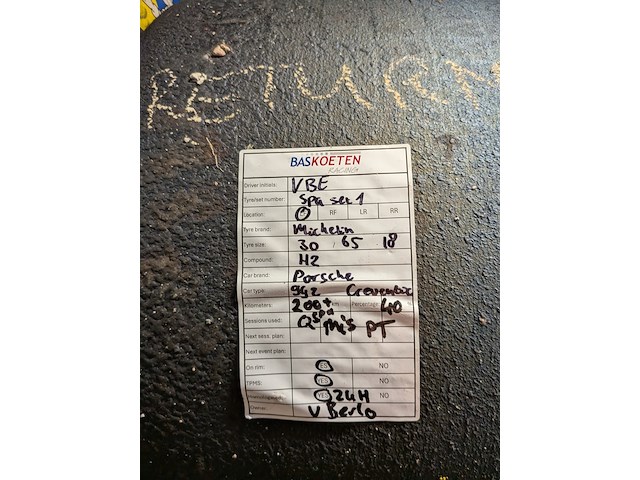 RETURN
BASKOETEN
RACING
Driver initials: VBE
Tyre/set number: Spa set 1
Location: RF LR RR
Tyre brand: Michelin
Tyre size 30 / 65 18
Compound: H2
Car brand: Porsche
Car type: 992 Creventic
Kilometers: 200+ km Percentage: 40
Sessions used: Q spa Mi's PT
Next sess. plan:
Next event plan:
On rim: YES NO
TPMS: YES NO
YES 24H NO
V Berlo